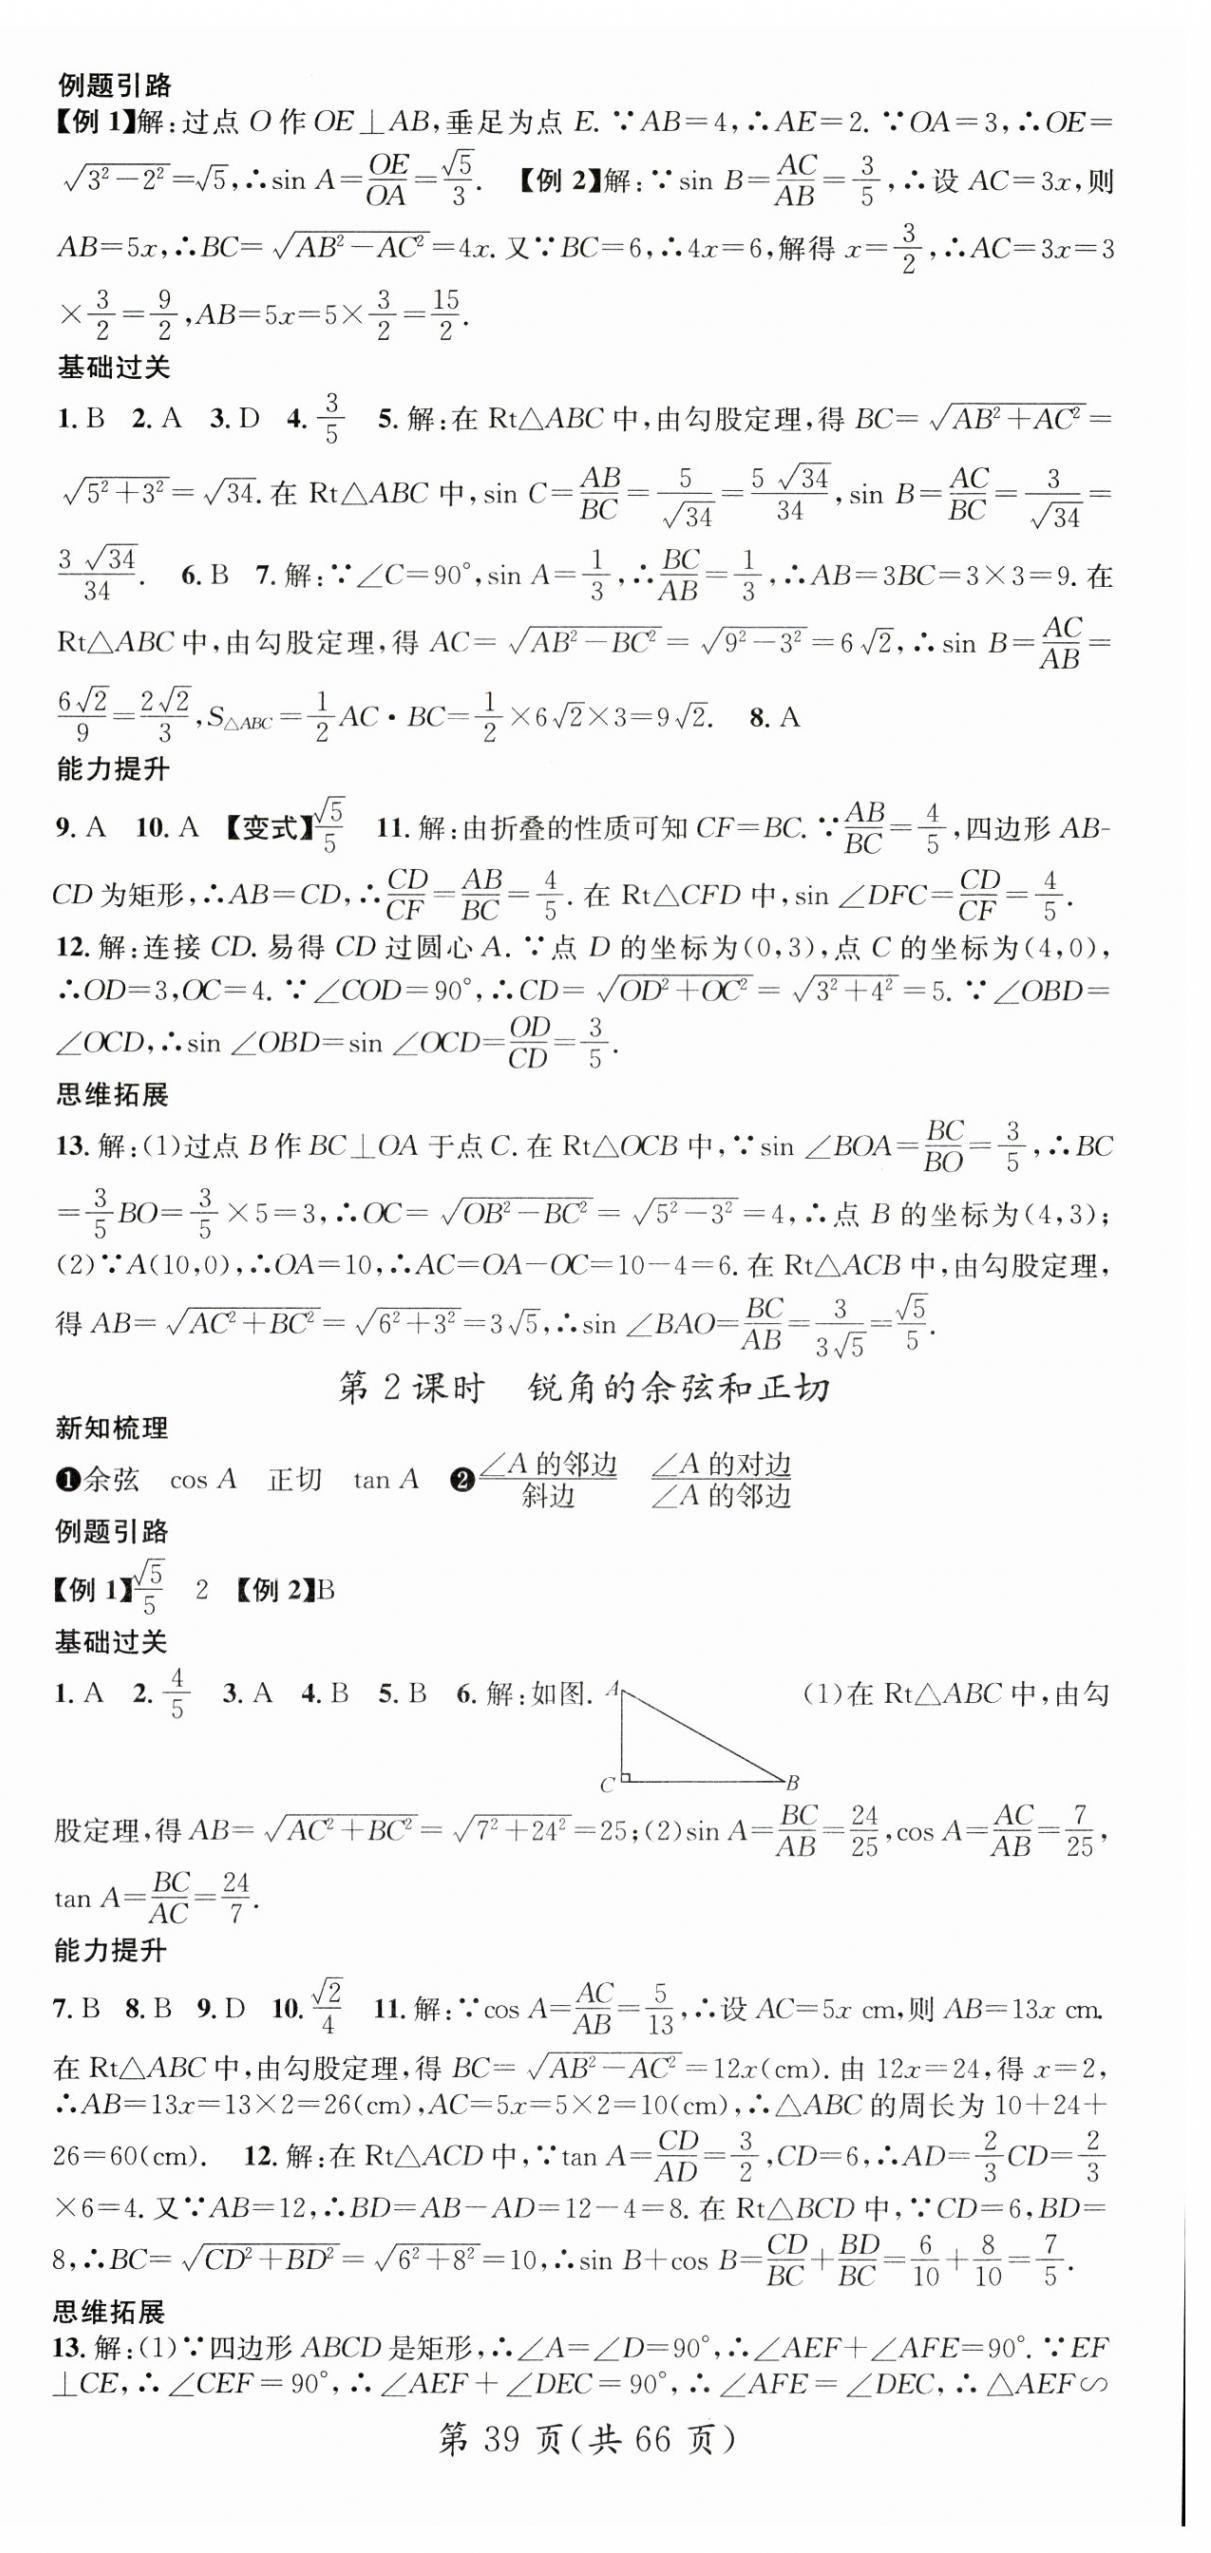 例题引路
【例 1】解:过点 O 作 OE⊥AB,垂足为点 E. ∵AB=4,∴AE=2. ∵OA=3,∴OE=
√(3²−2²)=√5,∴sin A=OE/OA=√5/3. 【例 2】解:∵sin B=AC/AB=3/5,∴设 AC=3x,则
AB=5x,∴BC=√(AB²−AC²)=4x. 又∵BC=6,∴4x=6,解得 x=3/2,∴AC=3x=3
×3/2=9/2,AB=5x=5×3/2=15/2.
基础过关
1. B 2. A 3. D 4. 3/5 5. 解:在 Rt△ABC 中,由勾股定理,得 BC=√(AB²+AC²)=
√(5²+3²)=√34. 在 Rt△ABC 中,sin C=AB/BC=5/√34=5√34/34,sin B=AC/BC=3/√34=
3√34/34. 6. B 7. 解:∵∠C=90°,sin A=1/3,∴BC/AB=1/3,∴AB=3BC=3×3=9. 在
Rt△ABC 中,由勾股定理,得 AC=√(AB²−BC²)=√(9²−3²)=6√2,∴sin B=AC/AB=
6√2/9=2√2/3,S△ABC=1/2AC·BC=1/2×6√2×3=9√2. 8. A
能力提升
9. A 10. A 【变式】√5/5 11. 解:由折叠的性质可知 CF=BC. ∵AB/BC=4/5,四边形 AB-
CD 为矩形,∴AB=CD,∴CD/CF=AB/BC=4/5. 在 Rt△CFD 中,sin ∠DFC=CD/CF=4/5.
12. 解:连接 CD. 易得 CD 过圆心 A. ∵点 D 的坐标为(0,3),点 C 的坐标为(4,0),
∴OD=3,OC=4. ∵∠COD=90°,∴CD=√(OD²+OC²)=√(3²+4²)=5. ∵∠OBD=
∠OCD,∴sin ∠OBD=sin ∠OCD=OD/CD=3/5.
思维拓展
13. 解:(1)过点 B 作 BC⊥OA 于点 C. 在 Rt△OCB 中,∵sin ∠BOA=BC/BO=3/5,∴BC
=3/5BO=3/5×5=3,∴OC=√(OB²−BC²)=√(5²−3²)=4,∴点 B 的坐标为(4,3);
(2)∵A(10,0),∴OA=10,∴AC=OA−OC=10−4=6. 在 Rt△ACB 中,由勾股定理,
得 AB=√(AC²+BC²)=√(6²+3²)=3√5,∴sin ∠BAO=BC/AB=3/(3√5)=√5/5.
第 2 课时 锐角的余弦和正切
新知梳理
❶余弦 cos A 正切 tan A ❷∠A 的邻边/斜边 ∠A 的对边/∠A 的邻边
例题引路
【例 1】√5/5 2 【例 2】B
基础过关
1. A 2. 4/5 3. A 4. B 5. B 6. 解:如图. A (1)在 Rt△ABC 中,由勾
C B
股定理,得 AB=√(AC²+BC²)=√(7²+24²)=25;(2)sin A=BC/AB=24/25,cos A=AC/AB=7/25,
tan A=BC/AC=24/7.
能力提升
7. B 8. B 9. D 10. √2/4 11. 解:∵cos A=AC/AB=5/13,∴设 AC=5x cm,则 AB=13x cm.
在 Rt△ABC 中,由勾股定理,得 BC=√(AB²−AC²)=12x(cm). 由 12x=24,得 x=2,
∴AB=13x=13×2=26(cm),AC=5x=5×2=10(cm),∴△ABC 的周长为 10+24+
26=60(cm). 12. 解:在 Rt△ACD 中,∵tan A=CD/AD=3/2,CD=6,∴AD=2/3CD=2/3
×6=4. 又∵AB=12,∴BD=AB−AD=12−4=8. 在 Rt△BCD 中,∵CD=6,BD=
8,∴BC=√(CD²+BD²)=√(6²+8²)=10,∴sin B+cos B=CD/BC+BD/BC=6/10+8/10=7/5.
思维拓展
13. 解:(1)∵四边形 ABCD 是矩形,∴∠A=∠D=90°,∴∠AEF+∠AFE=90°. ∵EF
⊥CE,∴∠CEF=90°,∴∠AEF+∠DEC=90°,∴∠AFE=∠DEC,∴△AEF∽
第 39 页(共 66 页)